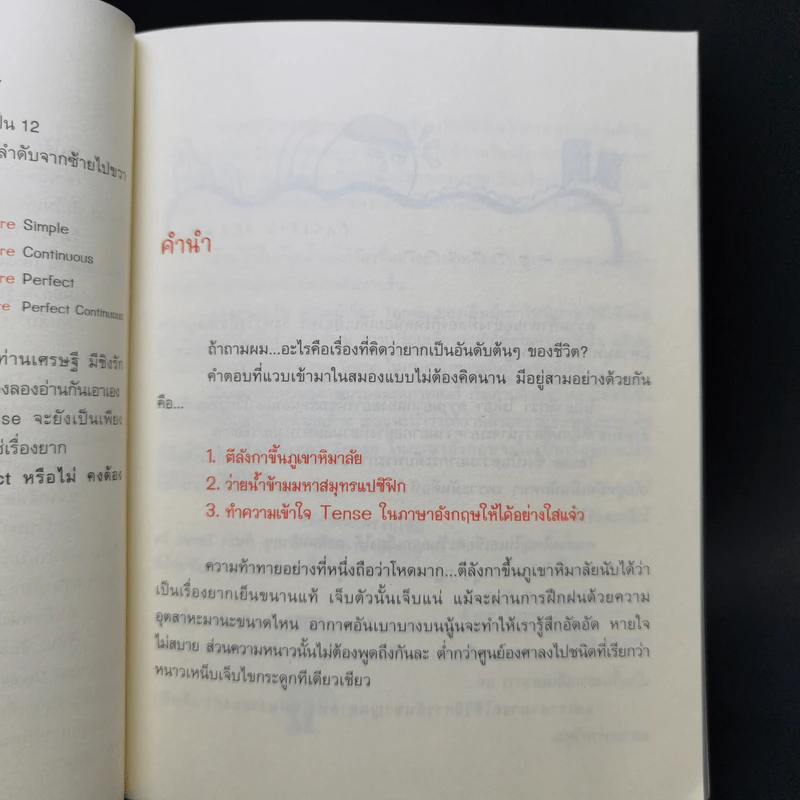 ป็น 12
ลำดับจากซ้ายไปขวา
re Simple
re Continuous
re Perfect
re Perfect Continuous
ท่านเศรษฐี มีชิงรัก
งลองอ่านกันเอาเอง
se จะยังเป็นเพียง
ช่เรื่องยาก
ct หรือไม่ คงต้อง
คำนำ
ถ้าถามผม...อะไรคือเรื่องที่คิดว่ายากเป็นอันดับต้นๆ ของชีวิต?
คำตอบที่แวบเข้ามาในสมองแบบไม่ต้องคิดนาน มีอยู่สามอย่างด้วยกัน
คือ...
1. ตีลังกาขึ้นภูเขาหิมาลัย
2. ว่ายน้ำข้ามมหาสมุทรแปซีฟิก
3. ทำความเข้าใจ Tense ในภาษาอังกฤษให้ได้อย่างใสแจ๋ว
ความท้าทายอย่างที่หนึ่งถือว่าโหดมาก...ตีลังกาขึ้นภูเขาหิมาลัยนับได้ว่า
เป็นเรื่องยากเย็นขนานแท้ เจ็บตัวนั้นเจ็บแน่ แม้จะผ่านการฝึกฝนด้วยความ
อุตสาหะมานะขนาดไหน อากาศอันเบาบางบนนู้นจะทำให้เรารู้สึกอัดอัด หายใจ
ไม่สบาย ส่วนความหนาวนั้นไม่ต้องพูดถึงกันละ ต่ำกว่าศูนย์องศาลงไปชนิดที่เรียกว่า
หนาวเหน็บเจ็บไขกระดูกทีเดียวเชียว